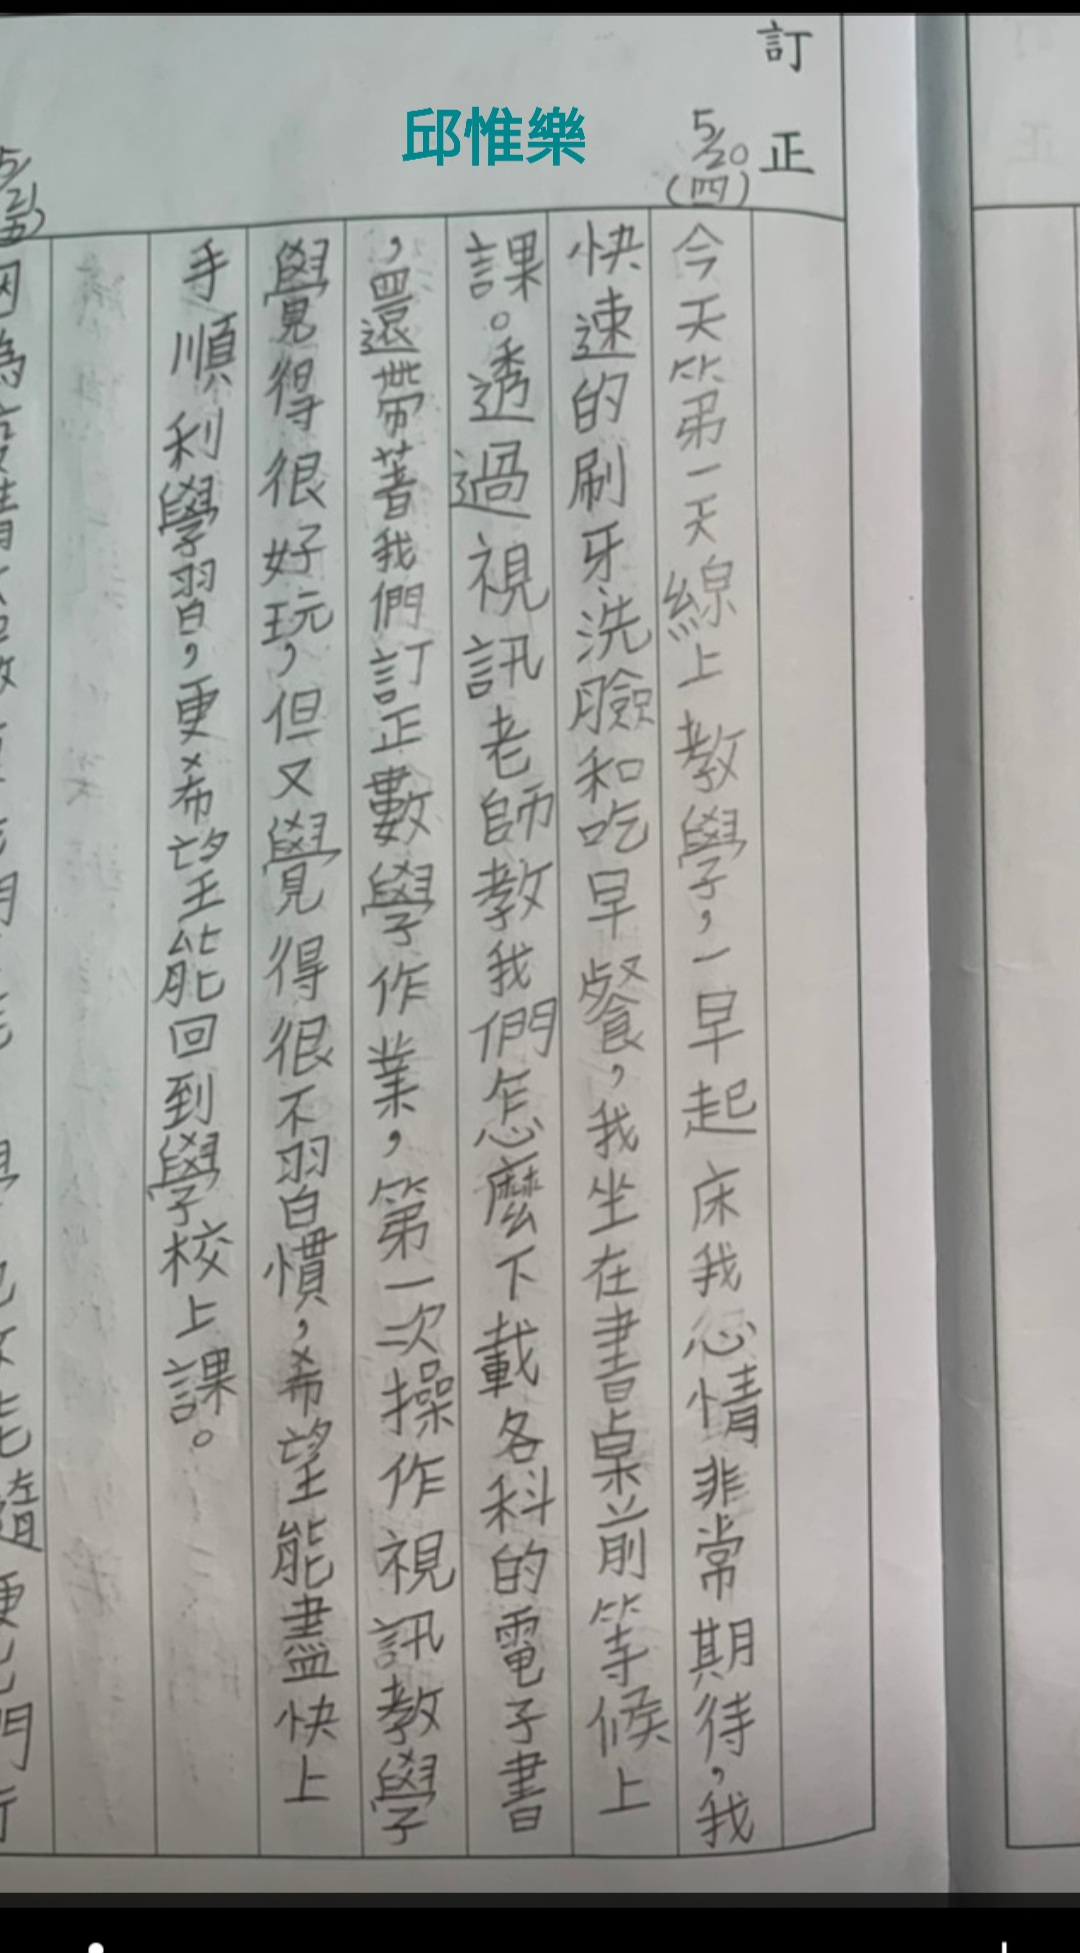 訂正
邱惟樂
5/20
(四)
今天第一天線上教學，一早起床我心情非常期待，我
快速的刷牙洗臉和吃早餐，我坐在書桌前等候上
課。透過視訊老師教我們怎麼下載各科的電子書
，還帶著我們訂正數學作業，第一次操作視訊教學
覺得很好玩，但又覺得很不習慣，希望能盡快上
手順利學習，更希望能回到學校上課。
5/21